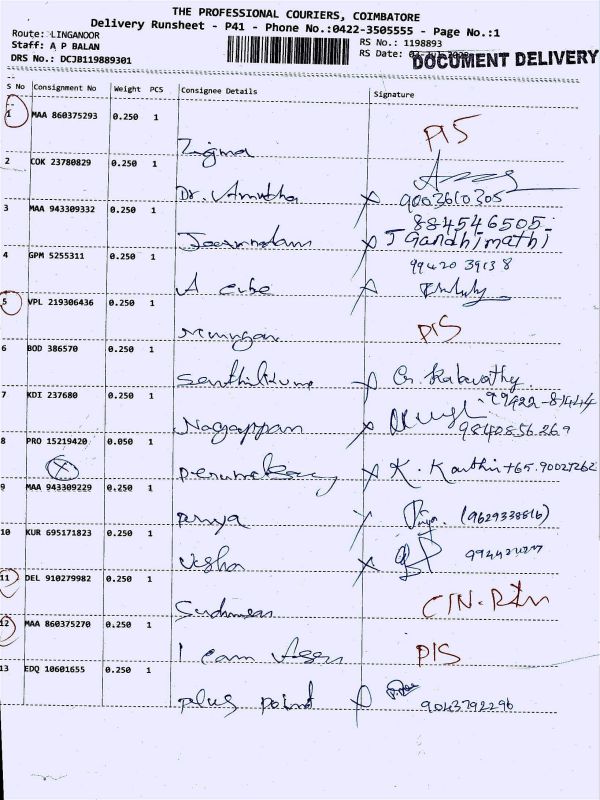 THE PROFESSIONAL COURIERS, COIMBATORE
Delivery Runsheet - P41 - Phone No.:0422-3505555 - Page No.:1
Route: LINGANOOR
RS No.: 1198893
Staff: A P BALAN
RS Date:
DOCUMENT DELIVERY
DRS No.: DCJB119889301
S No Consignment No Weight PCS Consignee Details Signature
1 MAA 860375293 0.250 1
Zigma PIS
2 COK 23780829 0.250 1
Dr. Amutha X 9003610305
3 MAA 943309332 0.250 1
884546505
X J Gandhimathi
4 GPM 5255311 0.250 1
99420 39138
A cube X
5 VPL 219306436 0.250 1
Murugan PIS
6 BOD 386570 0.250 1
Senthilkumar X G. Kalavathy
7 KDI 237680 0.250 1
99422-81444
Nagappan X 9840856269
8 PRO 15219420 0.050 1
X
X K. Karthi
9 MAA 943309229 0.250 1
Priya X Priya (9629338816)
10 KUR 695171823 0.250 1
Usha X
11 DEL 910279982 0.250 1
12 MAA 860375270 0.250 1
I cam PIS
13 EDQ 10601655 0.250 1
plus point X
9043792296